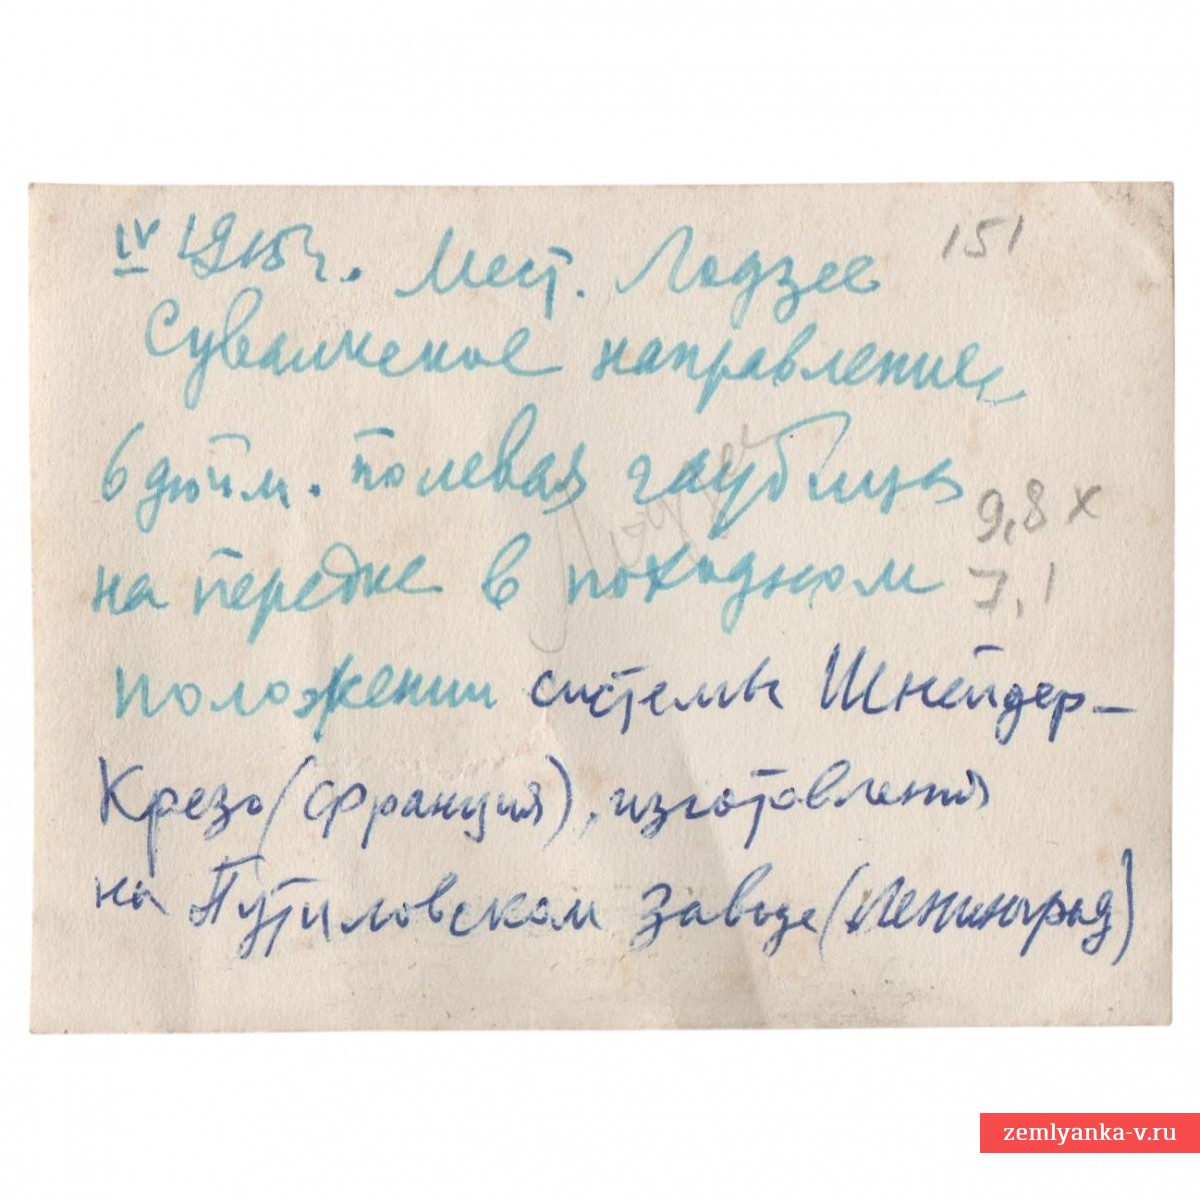 IV 1915 г. Мест. Лодзее 151
Сувалкское направление
6 дюйм. полевая гаубица
9,8 х
на передке в походном
7,1
положении системы Шнейдер-
Крезо (Франция), изготовления
на Путиловском заводе (Ленинград)
zemlyanka-v.ru